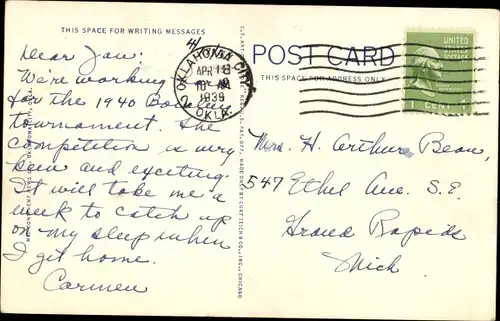 THIS SPACE FOR WRITING MESSAGES
Dear Jan:
We're working
for the 1940
tournament. The
competition is very
keen and exciting.
It will take me a
week to catch up
on my sleep when
I get home.
Carmen
4/
OKLAHOMA CITY
APR 18
1939
OKLA.
2
POST CARD
THIS SPACE FOR ADDRESS ONLY
UNITED
STATES
POSTAGE
1 CENT 1
Mrs. H. Arthur Bean,
547 Ethel Ave. S.E.
Grand Rapids
Mich